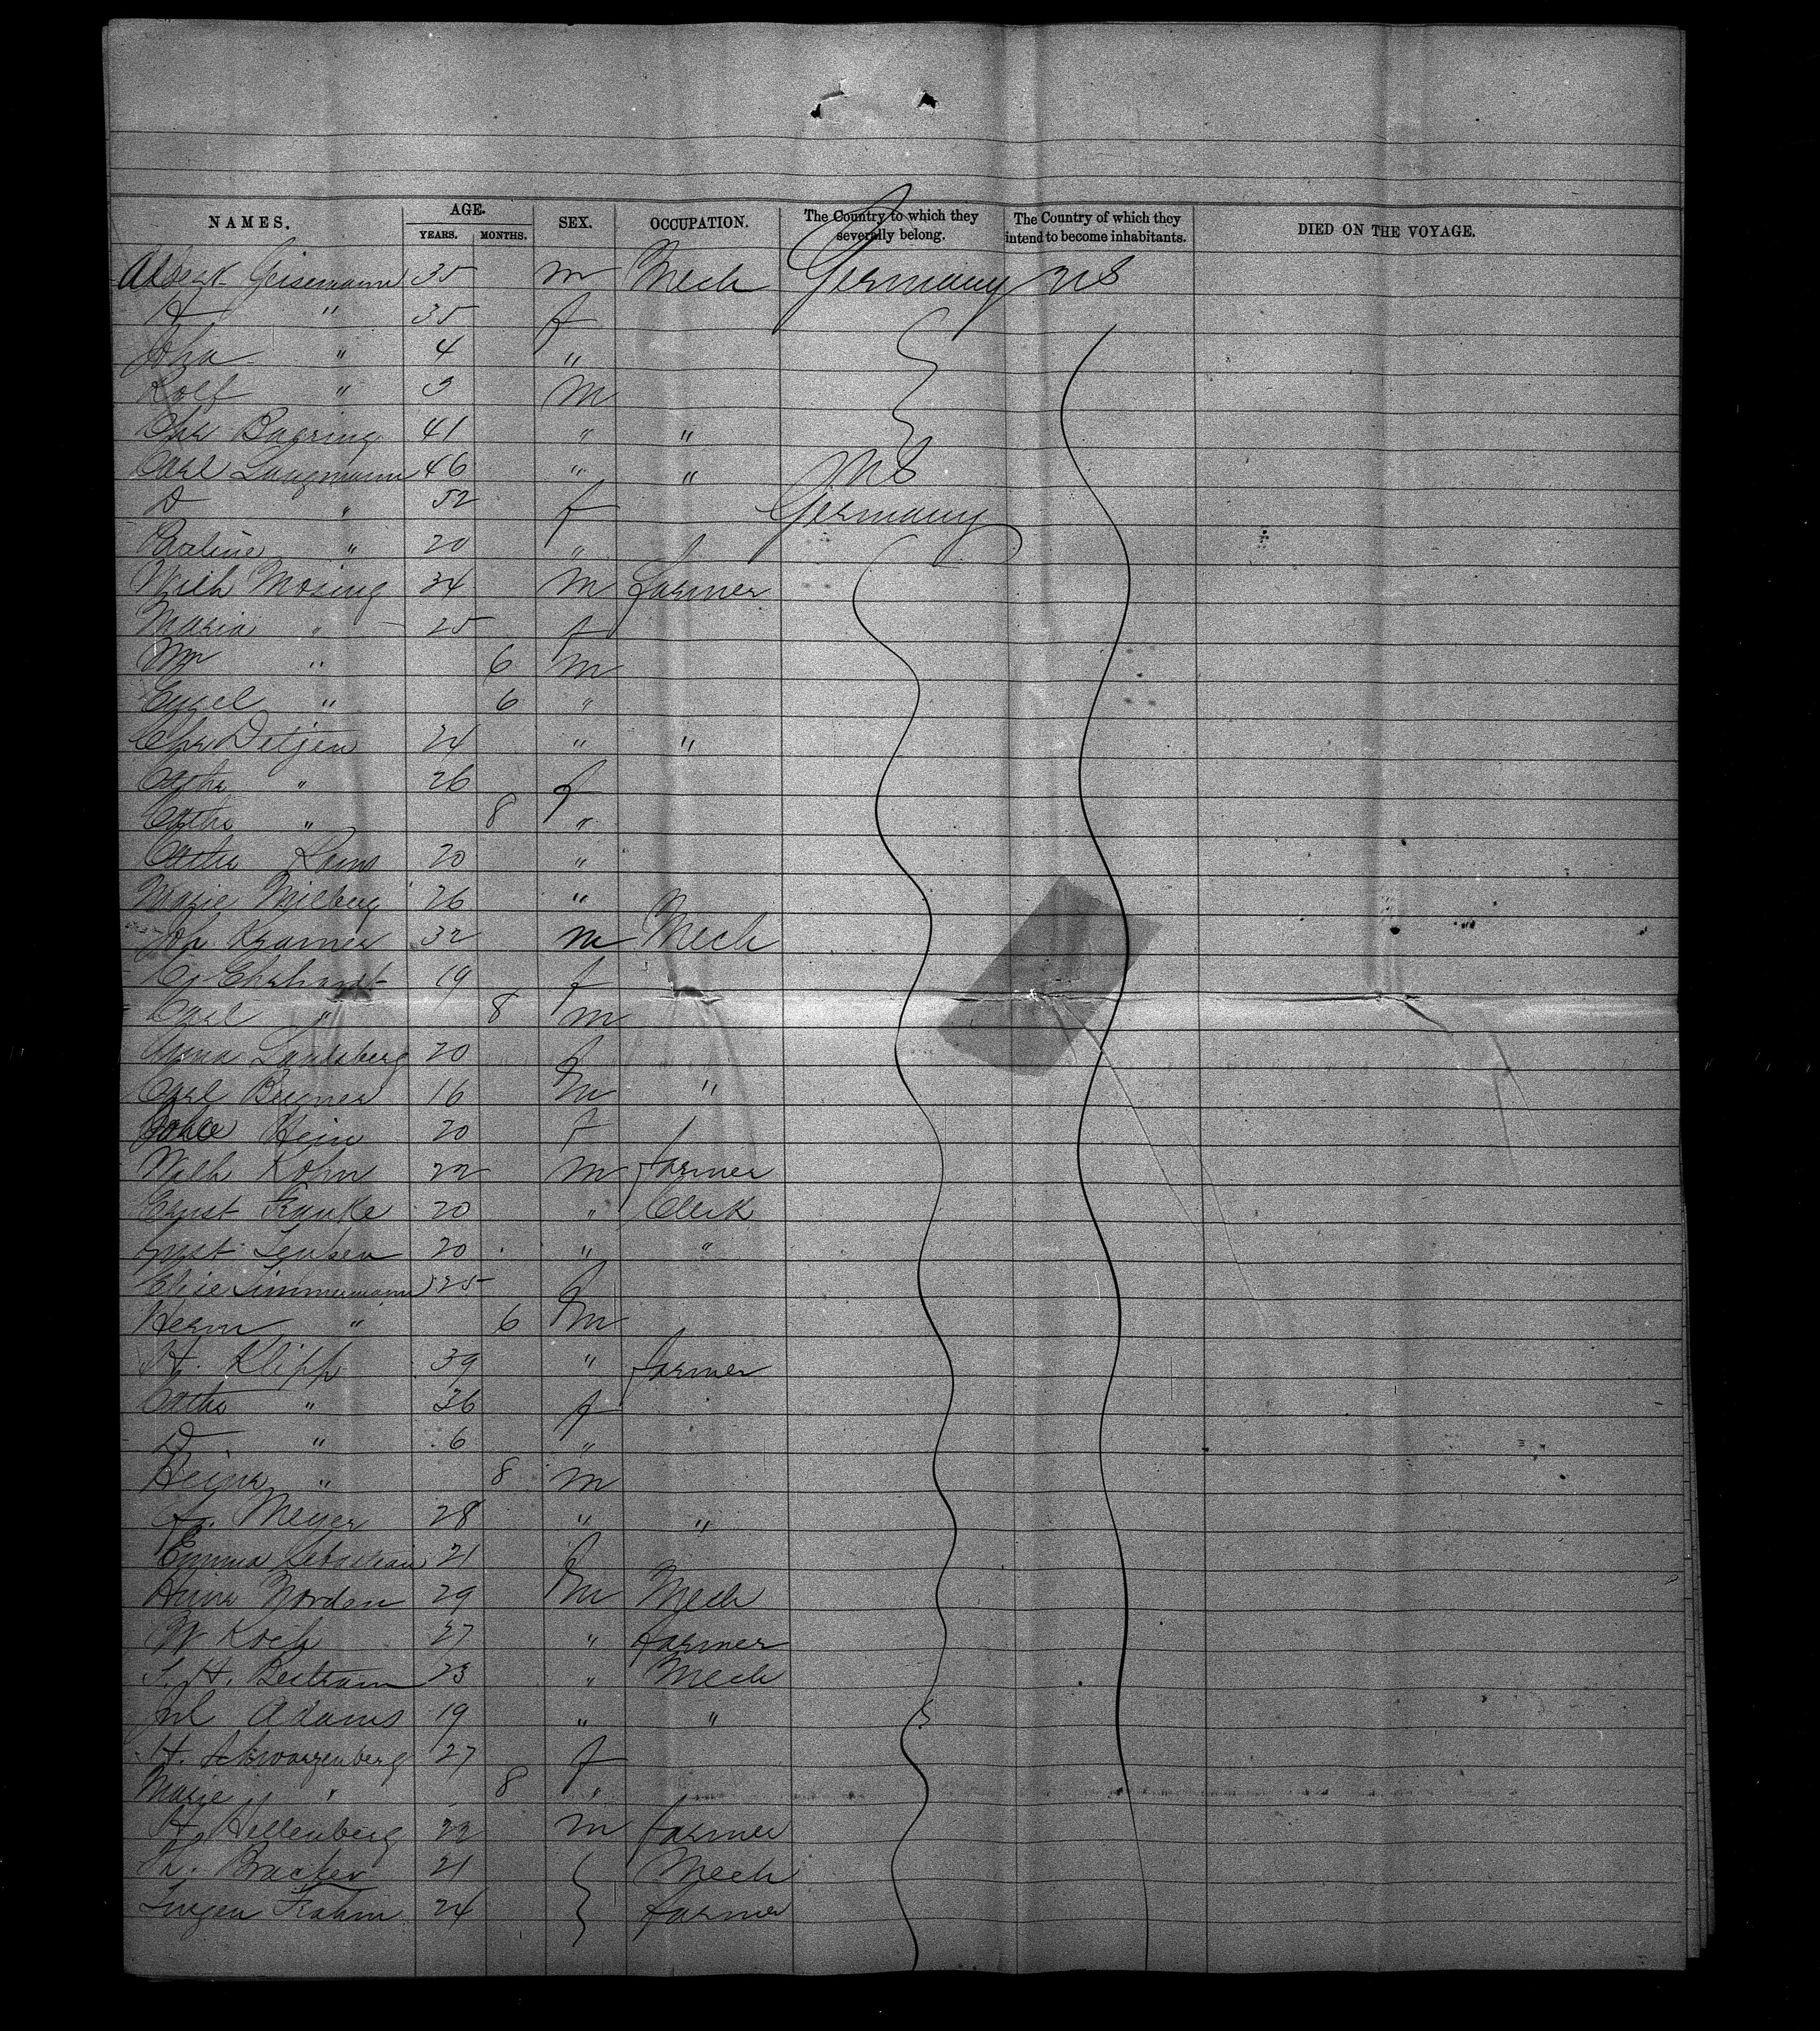 NAMES. AGE. SEX. OCCUPATION. The Country to which they severally belong. The Country of which they intend to become inhabitants. DIED ON THE VOYAGE.
YEARS. MONTHS.
Albert Geisemann 35 m Mech Germany US
H " 35 f
Joha " 4 "
Rolf " 3 m
Chr Bagring 41 " "
Carl Langmann 46 " " US
D " 52 f Germany
Pauline " 20 "
Wilh Mosing 34 m farmer
Maria " 25 f
Wm " 6 m
" 6 "
Chr Detjen 24 " "
Cathe " 26 f
Cathe " 8 "
Cathe 20 "
Marie Milberg 26 "
Joh. Kramer 32 m Mech
Ehrhardt 19 f
Carl " 8 m
Anna 20 f
Carl 16 m "
Hein 20 f
Wilh Kohn 22 m farmer
Ernst Franke 20 " Clerk
20 " "
Elise Simmermann 25 f
Herm " 6 m
H. Klipp 39 " farmer
Cathe " 36 f
D " 6 "
Heinr " 8 m
Meyer 28 " "
Emma Sebastian 21 f
Heinr Norden 29 m Mech
W Koch 27 " farmer
H. Bertram 23 " Mech
Jul Adams 19 " "
H. Schwarzenberg 27 f
Marie " 8 "
H. Hellenberg 22 m farmer
Th. Bracker 21 Mech
Jurgen Frahm 24 farmer